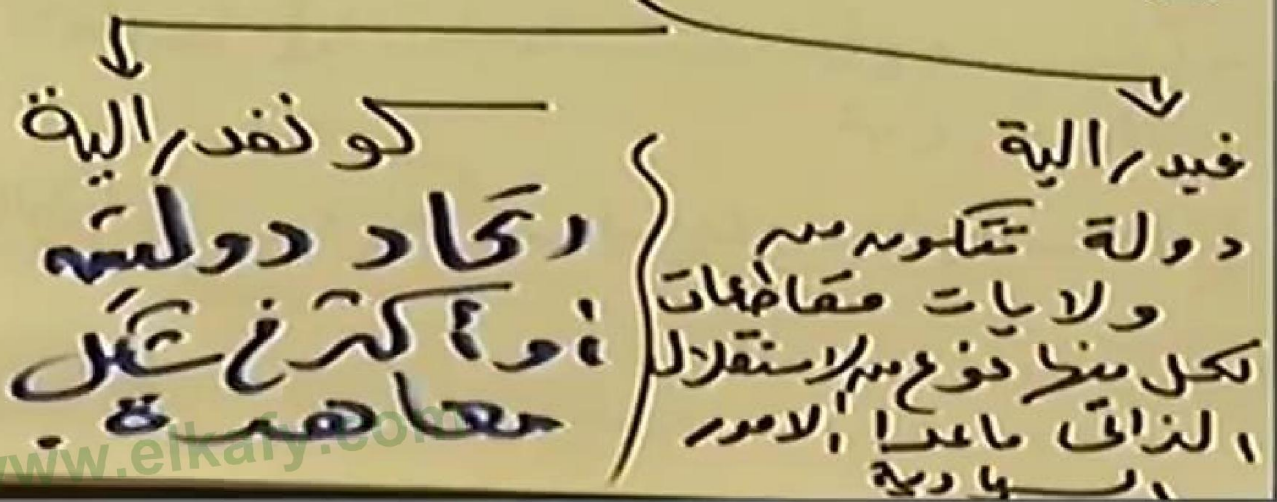 فيدرالية
دولة تتكون من
ولايات مقاطعات
لكل منها نوع من الاستقلال
الذاتى ماعدا الامور
السيادية
كونفدرالية
اتحاد دولتين
أو أكثر فى شكل
معاهدة.
www.elkafy.com